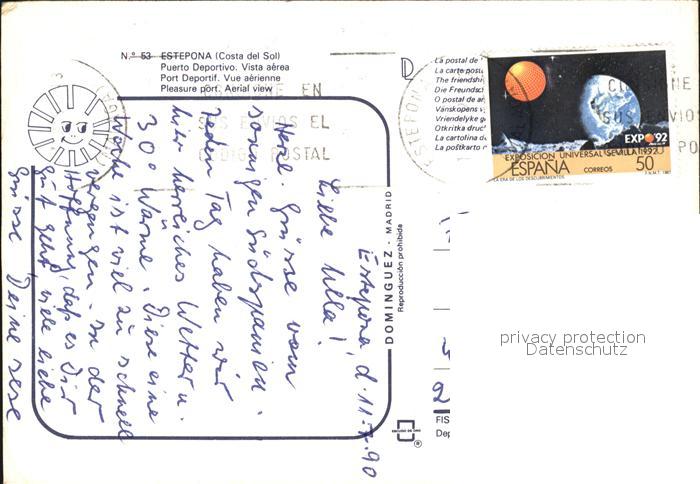 N.º 53 ESTEPONA (Costa del Sol)
Puerto Deportivo. Vista aérea
Port Deportif. Vue aérienne
Pleasure port. Aerial view
EN
SUS ENVIOS EL
CODIGO POSTAL
La postal de
La carte postale
The friendship
Die Freundsch
O postal de a
Vänskapens v
Vriendelijke g
Otkritka druc
La cartolina de
La poštkarto
EXPO 92
EXPOSICION UNIVERSAL SEVILLA 1992
ESPAÑA
CORREOS
50
LA ERA DE LOS DESCUBRIMIENTOS
F.N.M.T. 1987
"SUS ENVIOS
Estepona, d. 11.7.90
Liebe Ulla!
Herzl. Grüsse vom
sonnigen Südspanien.
Jeden Tag haben wir
hier herrliches Wetter u.
30° Wärme. Diese eine
Woche ist viel zu schnell
vergangen. In der
Hoffnung, daß es Dir
gut geht, viele liebe
Grüsse Deine
DOMINGUEZ - MADRID
Reproducción prohibida
ESCUDO DE ORO
®
FIS
Dep
privacy protection
Datenschutz